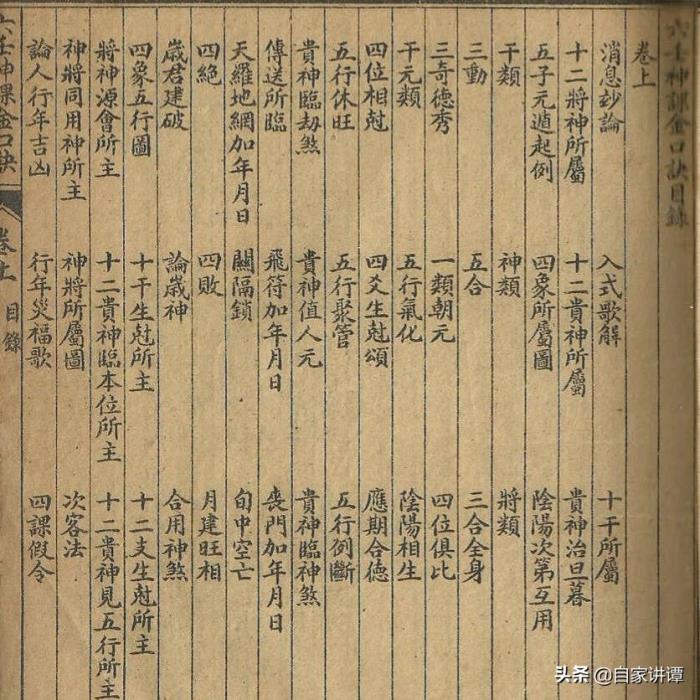 六壬神課金口訣目錄
卷上
消息鈔論 入式歌解 十干所屬
十二將神所屬 十二貴神所屬 貴神治旦暮
五子元遁起例 四象所屬圖 陰陽次第互用
干類 神類 將類
三動 五合 三合全身
三奇德秀 一類朝元 四位俱比
干元類 五行氣化 陰陽相生
四位相尅 四爻生尅頌 應期合德
五行休旺 五行聚管 五行例斷
貴神臨劫煞 貴神值人元 貴神臨神煞
傳送所臨 飛符加年月日 喪門加年月日
天羅地網加年月日 關隔鎖 旬中空亡
四絕 四敗 月建旺相
歲君建破 論歲神 合用神煞
四象五行圖 十干生尅所主 十二支生尅所主
將神源會所主 十二貴神臨本位所主 十二貴神見五行所主
神將同用神所主 神將所屬圖 次客法
論人行年吉凶 行年災福歌 四課假令
六壬神課金口訣 卷上 目錄
头条 @自家讲谭